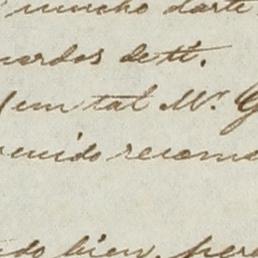 mucho darte
uardos de ti.
un tal Mr. G
enido recom
do bien, pero